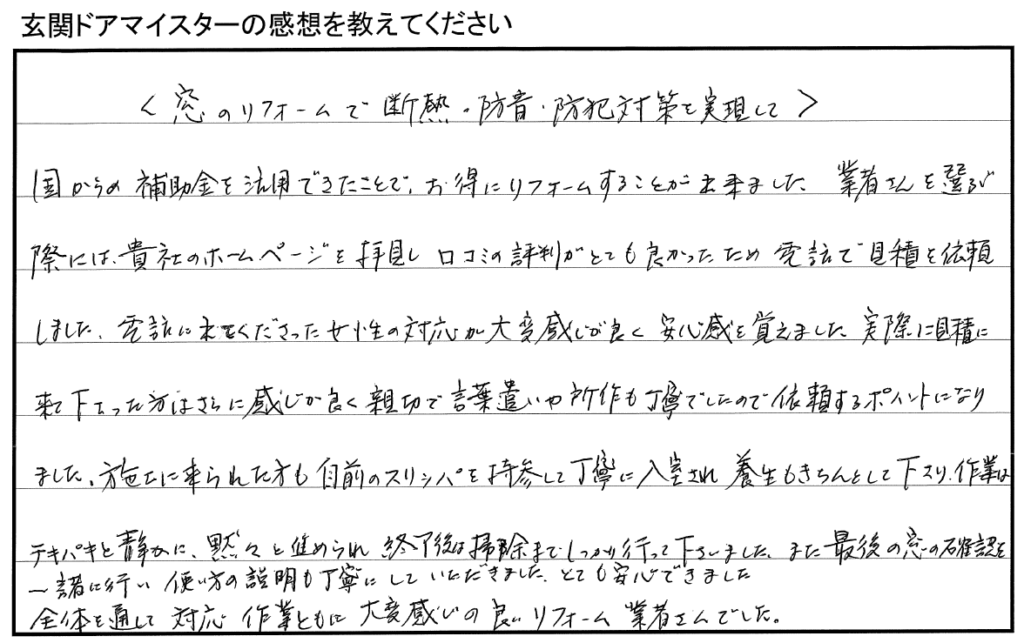 玄関ドアマイスターの感想を教えてください
<窓のリフォームで断熱・防音・防犯対策を実現して>
国からの補助金を活用できたことで、お得にリフォームすることが出来ました。業者さんを選ぶ
際には、貴社のホームページを拝見し口コミの評判がとても良かったため電話で見積を依頼
しました。電話に出てくださった女性の対応が大変感じが良く安心感を覚えました。実際に見積に
来て下さった方はさらに感じが良く親切で言葉遣いや所作も丁寧でしたので依頼するポイントになり
ました。施工に来られた方も自前のスリッパを持参して丁寧に入室され養生もきちんとして下さり、作業は
テキパキと静かに、黙々と進められ終了後は掃除までしっかり行って下さいました。また最後の窓の確認を
一諸に行い使い方の説明も丁寧にしていただきました。とても安心できました
全体を通して対応作業ともに大変感じの良いリフォーム業者さんでした。